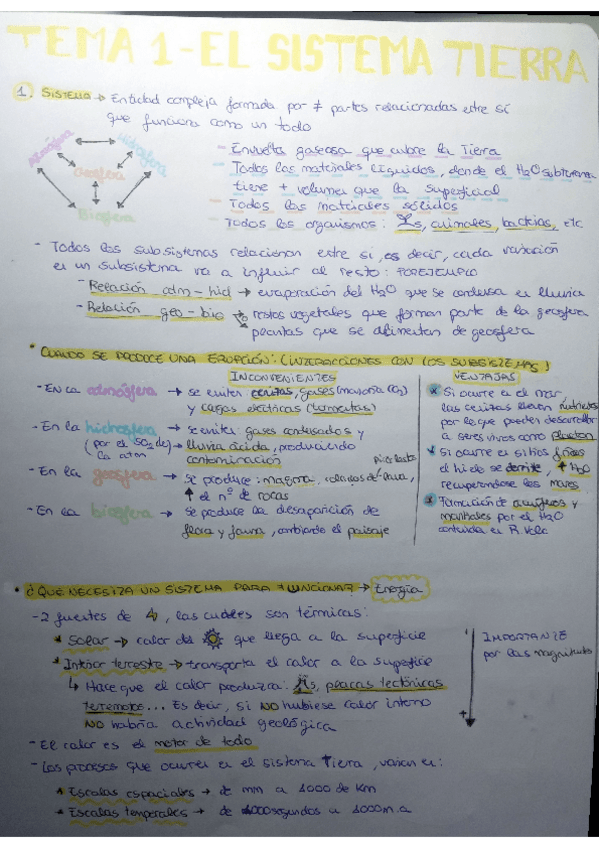 TEMA 1-EL SISTEMA TIERRA
1. SISTEMA → Entidad compleja formada por ≠ partes relacionadas entre sí
que funciona como un todo
Atmósfera
Hidrosfera
Geosfera
Biosfera
- Envuelta gaseosa que cubre la Tierra
- Todos los materiales líquidos, donde el H2O subterránea
tiene + volumen que la superficial
- Todos los materiales sólidos
- Todos los organismos: animales, bacterias, etc
- Todos los subsistemas relacionan entre si, es decir, cada variación
en un subsistema va a influir al resto: POR EJEMPLO
- Relación atm-hid → evaporación del H2O que se condensa en lluvia
- Relación geo-bio → restos vegetales que forman parte de la geosfera
plantas que se alimentan de geosfera
* CUANDO SE PRODUCE UNA ERUPCIÓN: (INTERACCIONES CON LOS SUBSISTEMAS)
INCONVENIENTES
- En la atmósfera → se emiten cenizas, gases (mayoría CO2)
y cargas eléctricas (tormentas)
- En la hidrosfera → se emiten gases condensados y
(por el SO2 de la atm) → lluvia ácida, produciendo
contaminación
- En la geosfera → se produce: magma, coladas de lava, piroclastos
↑ el nº de rocas
- En la biosfera → se produce la desaparición de
flora y fauna, cambiando el paisaje
VENTAJAS
* Si ocurre en el mar
las cenizas llevan nutrientes
por lo que pueden desarrollar
a seres vivos como plancton
* Si ocurre en sitios fríos
el hielo se derrite, ↑ H2O
recuperándose los mares
* Formación de acuíferos y
manantiales por el H2O
contenida en R. Volc
• ¿QUE NECESITA UN SISTEMA PARA FUNCIONAR? → Energía
- 2 fuentes de , las cuales son térmicas:
* Solar → calor del que llega a la superficie
* Interior terrestre → transporta el calor a la superficie
↳ Hace que el calor produzca: , placas tectónicas
terremotos... Es decir, si NO hubiese calor interno
NO habría actividad geológica
IMPORTANTE
por las magnitudes
+
- El calor es el motor de todo
- Los procesos que ocurren en el sistema Tierra, varían en:
* Escalas espaciales → de mm a 1000 de Km
* Escalas temporales → de segundos a 1000 m.a